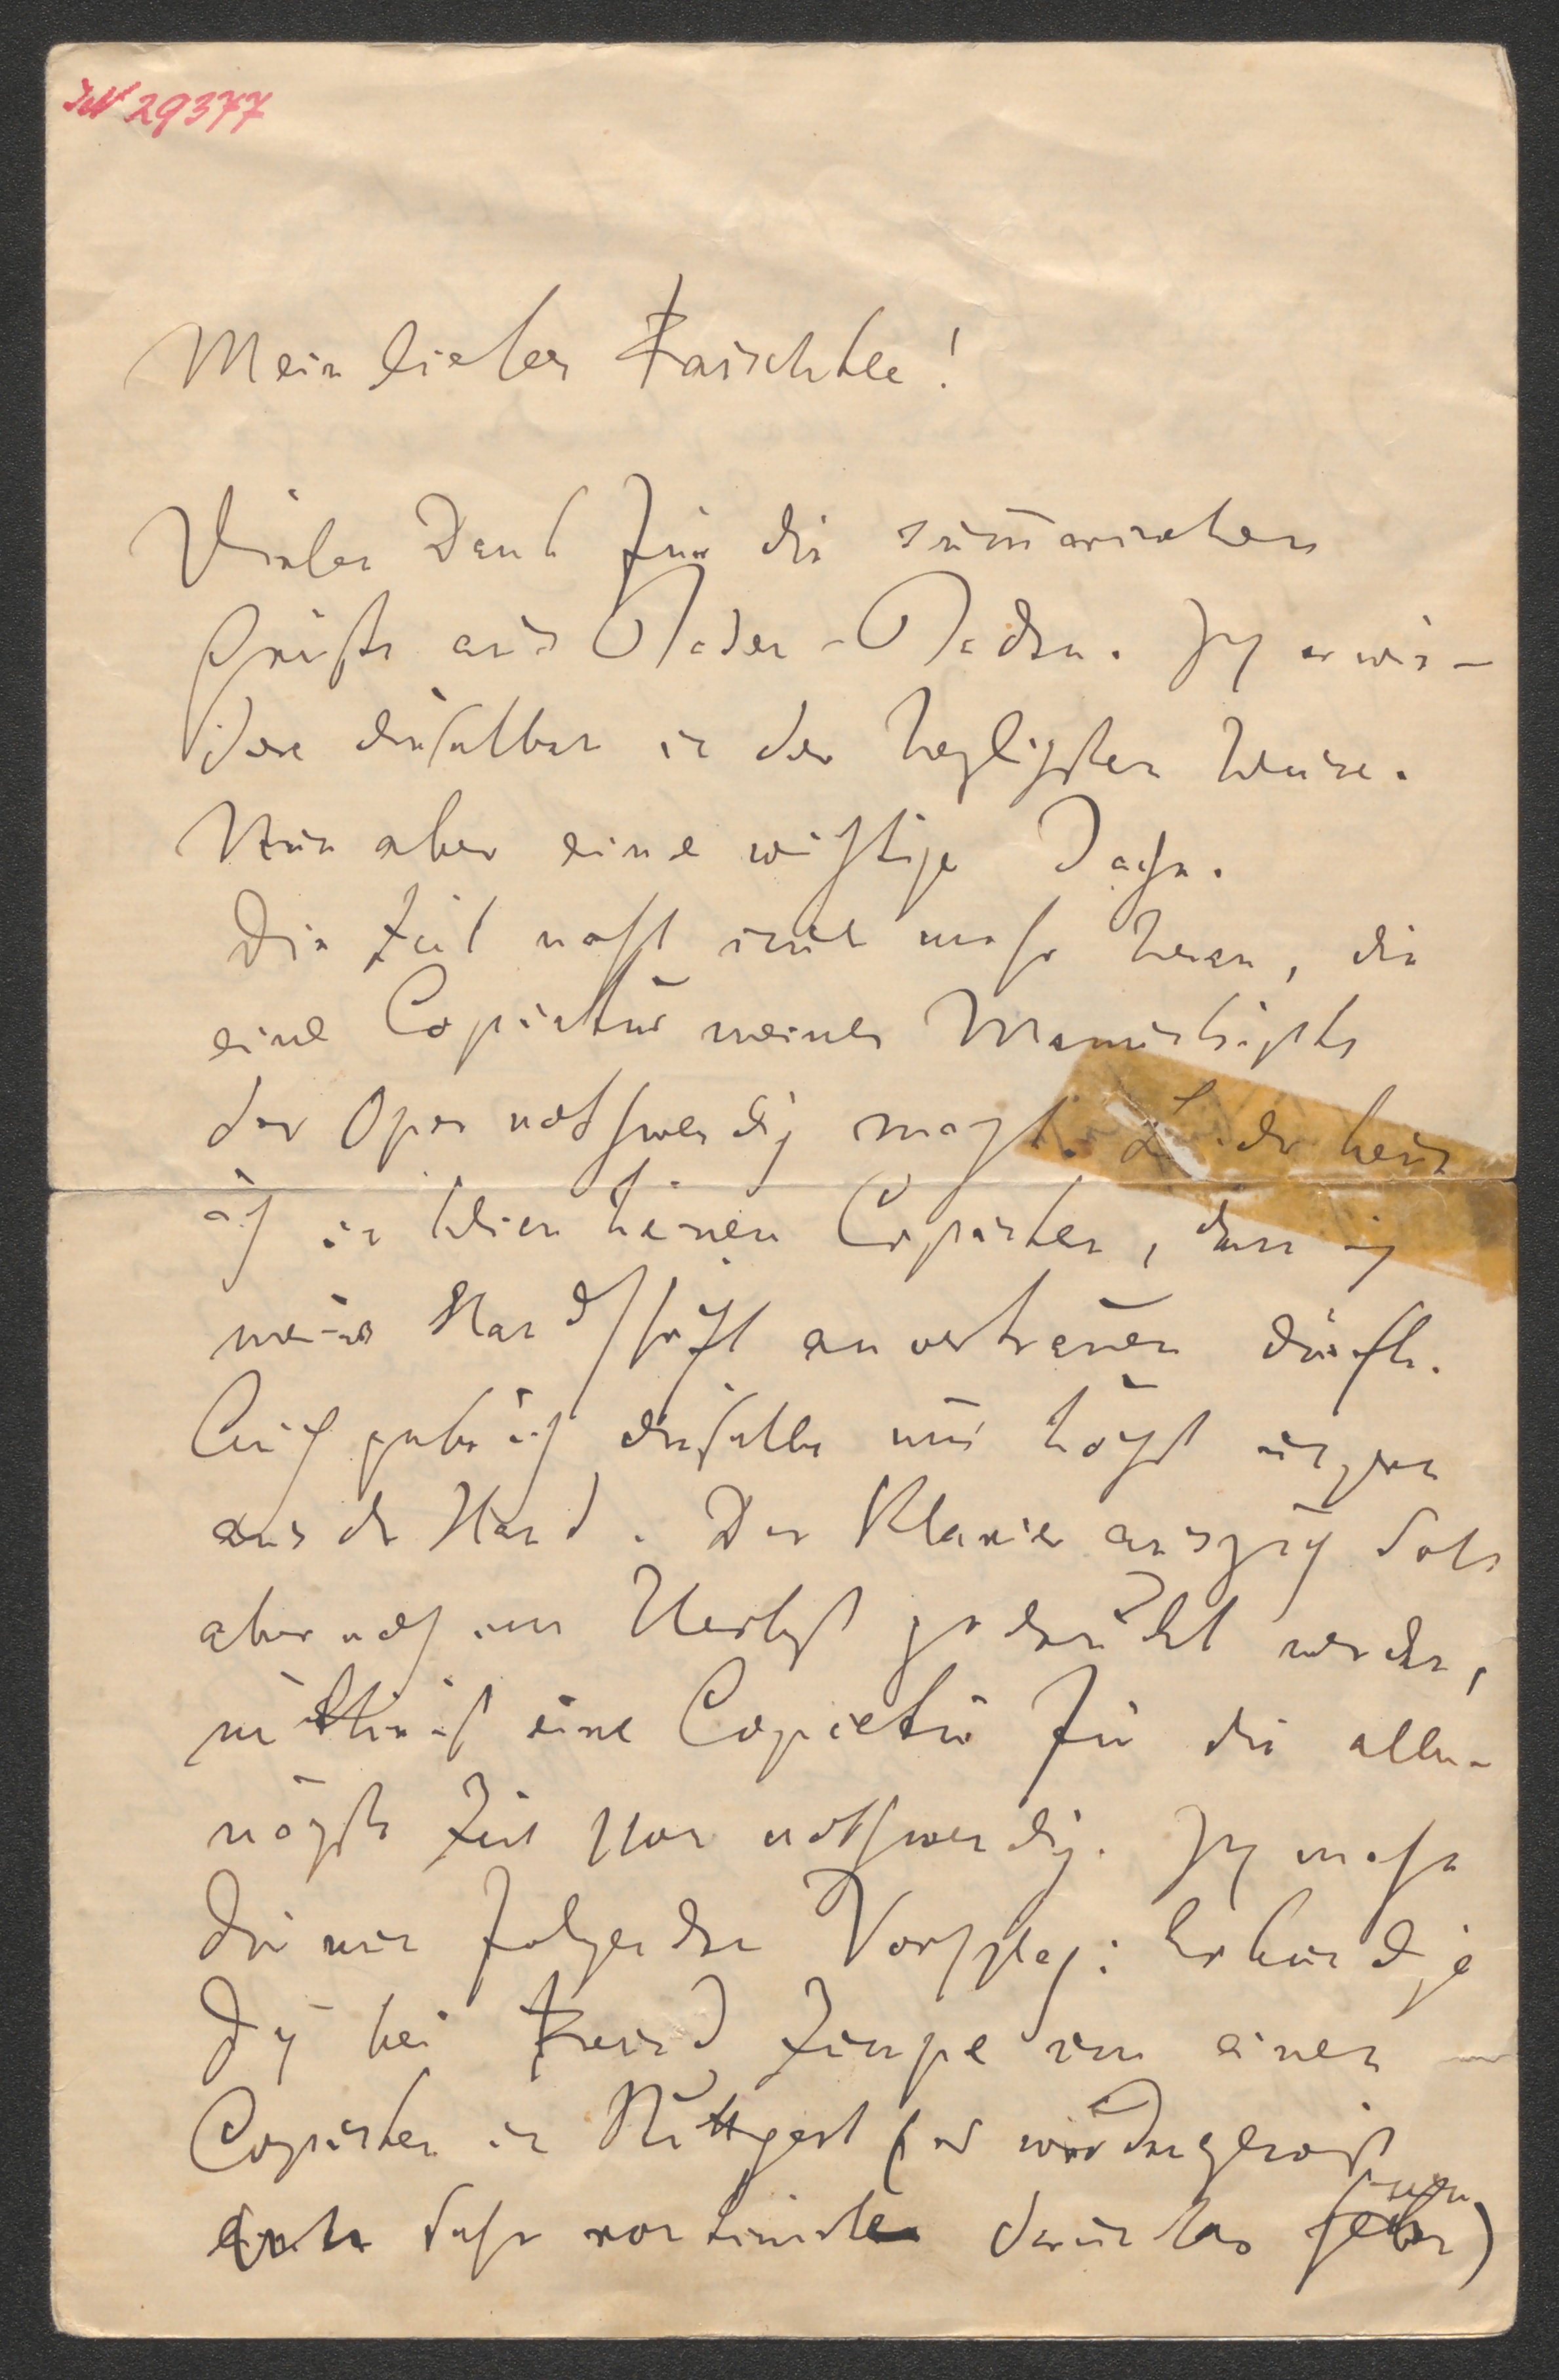 JN 29377
Mein lieber Kauschtle!
Vielen Dank für die summarischen
Grüße aus Baden-Baden. Ich erwie-
dere dieselben in der herzlichsten Weise.
Nun aber eine wichtige Sache.
Die Zeit naht immer mehr heran, die
eine Copiatur meines Manuskripts
der Oper nothwendig macht. Leider kenn
ich in Wien keinen Copisten, dem ich
meine Handschrift anvertrauen dürfte.
Auch gebe ich dieselbe nur höchst ungern
aus der Hand. Der Klavierauszug soll
aber noch im Herbst gedruckt werden,
mithin ist eine Copiatur für die aller-
nächste Zeit schon nothwendig. Ich mache
Dir nun folgenden Vorschlag: Erkundige
Dich bei Freund Zumpe um einen
Copisten in Stuttgart (es wird dergleichen
Leute sehr von Einsicht darunter geben)